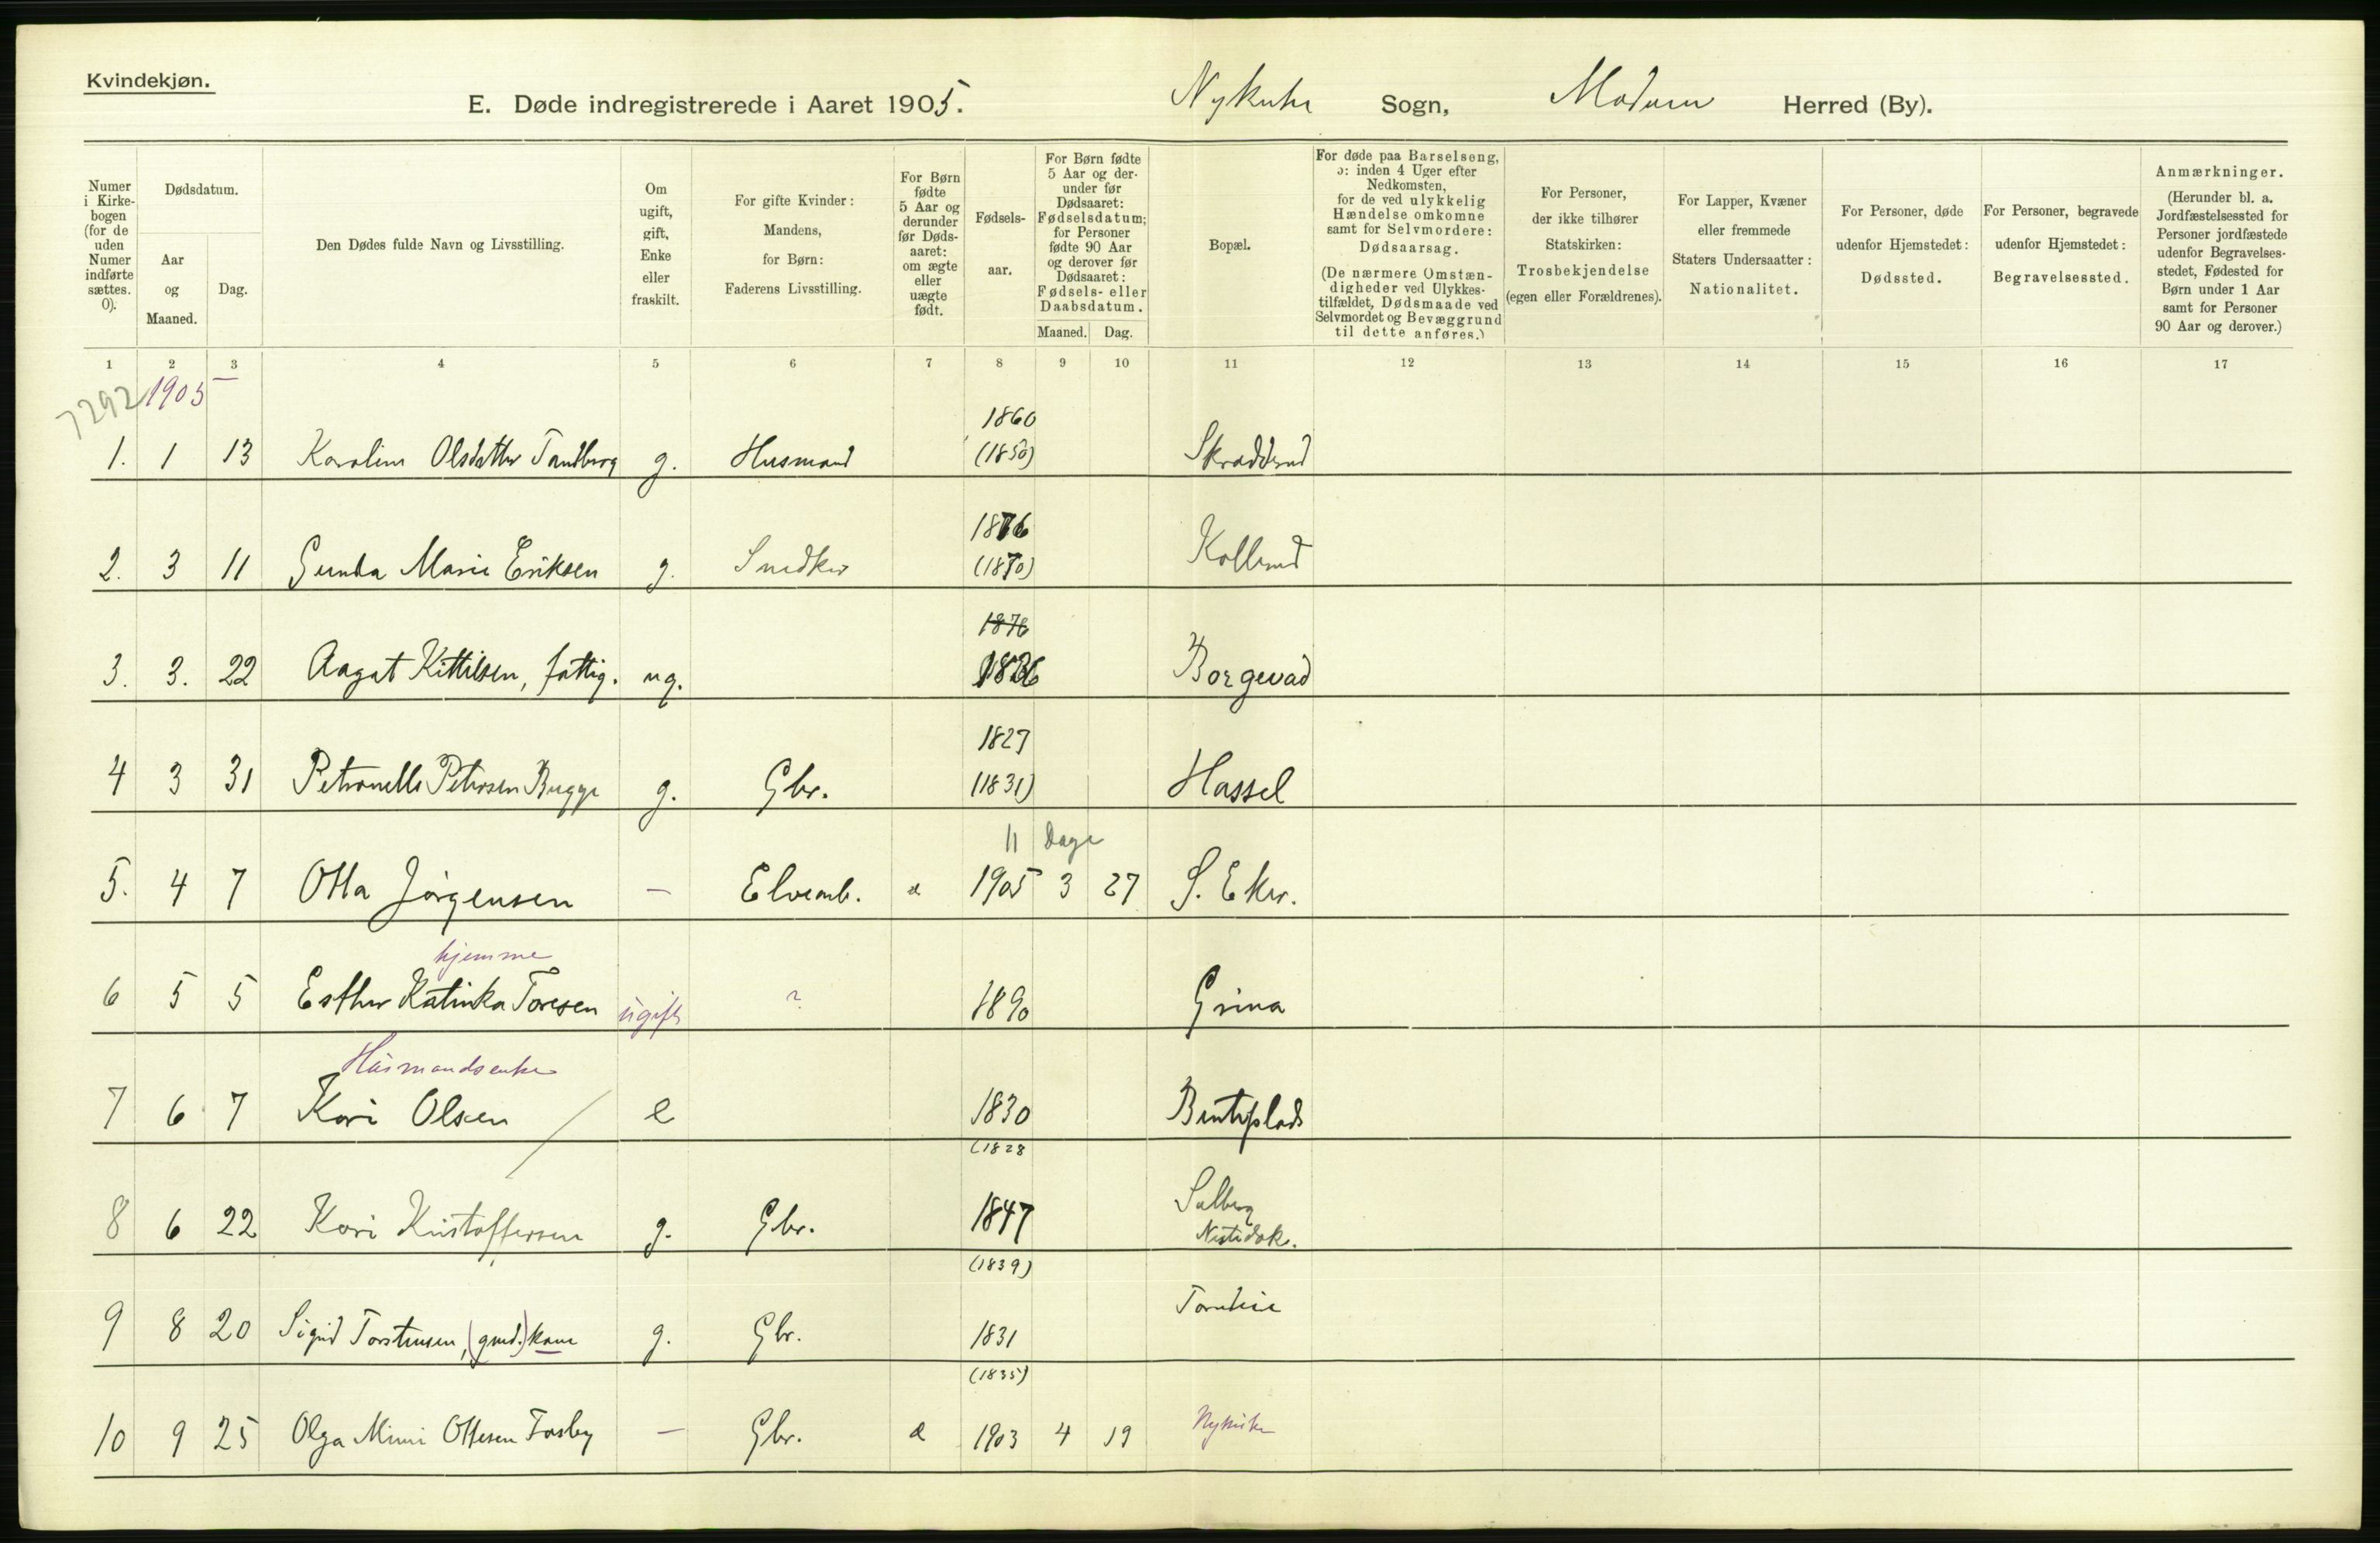 Kvindekjøn.
E. Døde indregistrerede i Aaret 1905. Nykirke Sogn, Modum Herred (By).
Numer i Kirkebogen (for de uden Numer indførte sættes. 0).
Dødsdatum.
Aar og Maaned.
Dag.
Den Dødes fulde Navn og Livsstilling.
Om ugift, gift, Enke eller fraskilt.
For gifte Kvinder: Mandens, for Børn: Faderens Livsstilling.
For Børn fødte 5 Aar og derunder før Døds-aaret: om ægte eller uægte født.
Fødsels-aar.
For Børn fødte 5 Aar og der-under før Dødsaaret: Fødselsdatum; for Personer fødte 90 Aar og derover før Dødsaaret: Fødsels- eller Daabsdatum.
Maaned. Dag.
Bopæl.
For døde paa Barselseng, ɔ: inden 4 Uger efter Nedkomsten, for de ved ulykkelig Hændelse omkomne samt for Selvmordere: Dødsaarsag.
(De nærmere Omstæn-digheder ved Ulykkes-tilfældet, Dødsmaade ved Selvmordet og Bevæggrund til dette anføres.)
For Personer, der ikke tilhører Statskirken: Trosbekjendelse (egen eller Forældrenes).
For Lapper, Kvæner eller fremmede Staters Undersaatter: Nationalitet.
For Personer, døde udenfor Hjemstedet: Dødssted.
For Personer, begravede udenfor Hjemstedet: Begravelsessted.
Anmærkninger.
(Herunder bl. a. Jordfæstelsessted for Personer jordfæstede udenfor Begravelses-stedet, Fødested for Børn under 1 Aar samt for Personer 90 Aar og derover.)
1 2 3 4 5 6 7 8 9 10 11 12 13 14 15 16 17
7292 1905
1860
1. 1 13 Karoline Olsdatter Tandberg g. Husmand (1850) Skraddrud
1876
2. 3 11 Gunda Marie Eriksen g. Snedker (1870) Kollerud
1876
3. 3. 22 Aagat Kittilsen, fattig. ug. 1836 Borgevad
1827
4 3 31 Petronelle Petersen Bugge g. Gbr. (1831) Hassel
11 Dage
5. 4 7 Otta Jörgensen — Elvearb. æ 1905 3 27 S. Eker.
hjemme
6 5 5 Esther Katinka Toresen ugift ? 1890 Grina
Husmandsenke
7 6 7 Kari Olsen e 1830 Bentsplads
(1828
8 6 22 Kari Kristoffersen g. Gbr. 1847 Solberg
(1839)
9 8 20 Sigrid Torstensen, (gmd.) kone g. Gbr. 1831
(1835)
10 9 25 Olga Mimi Ottesen Fosby — Gbr. æ 1903 4 19 Nykirke